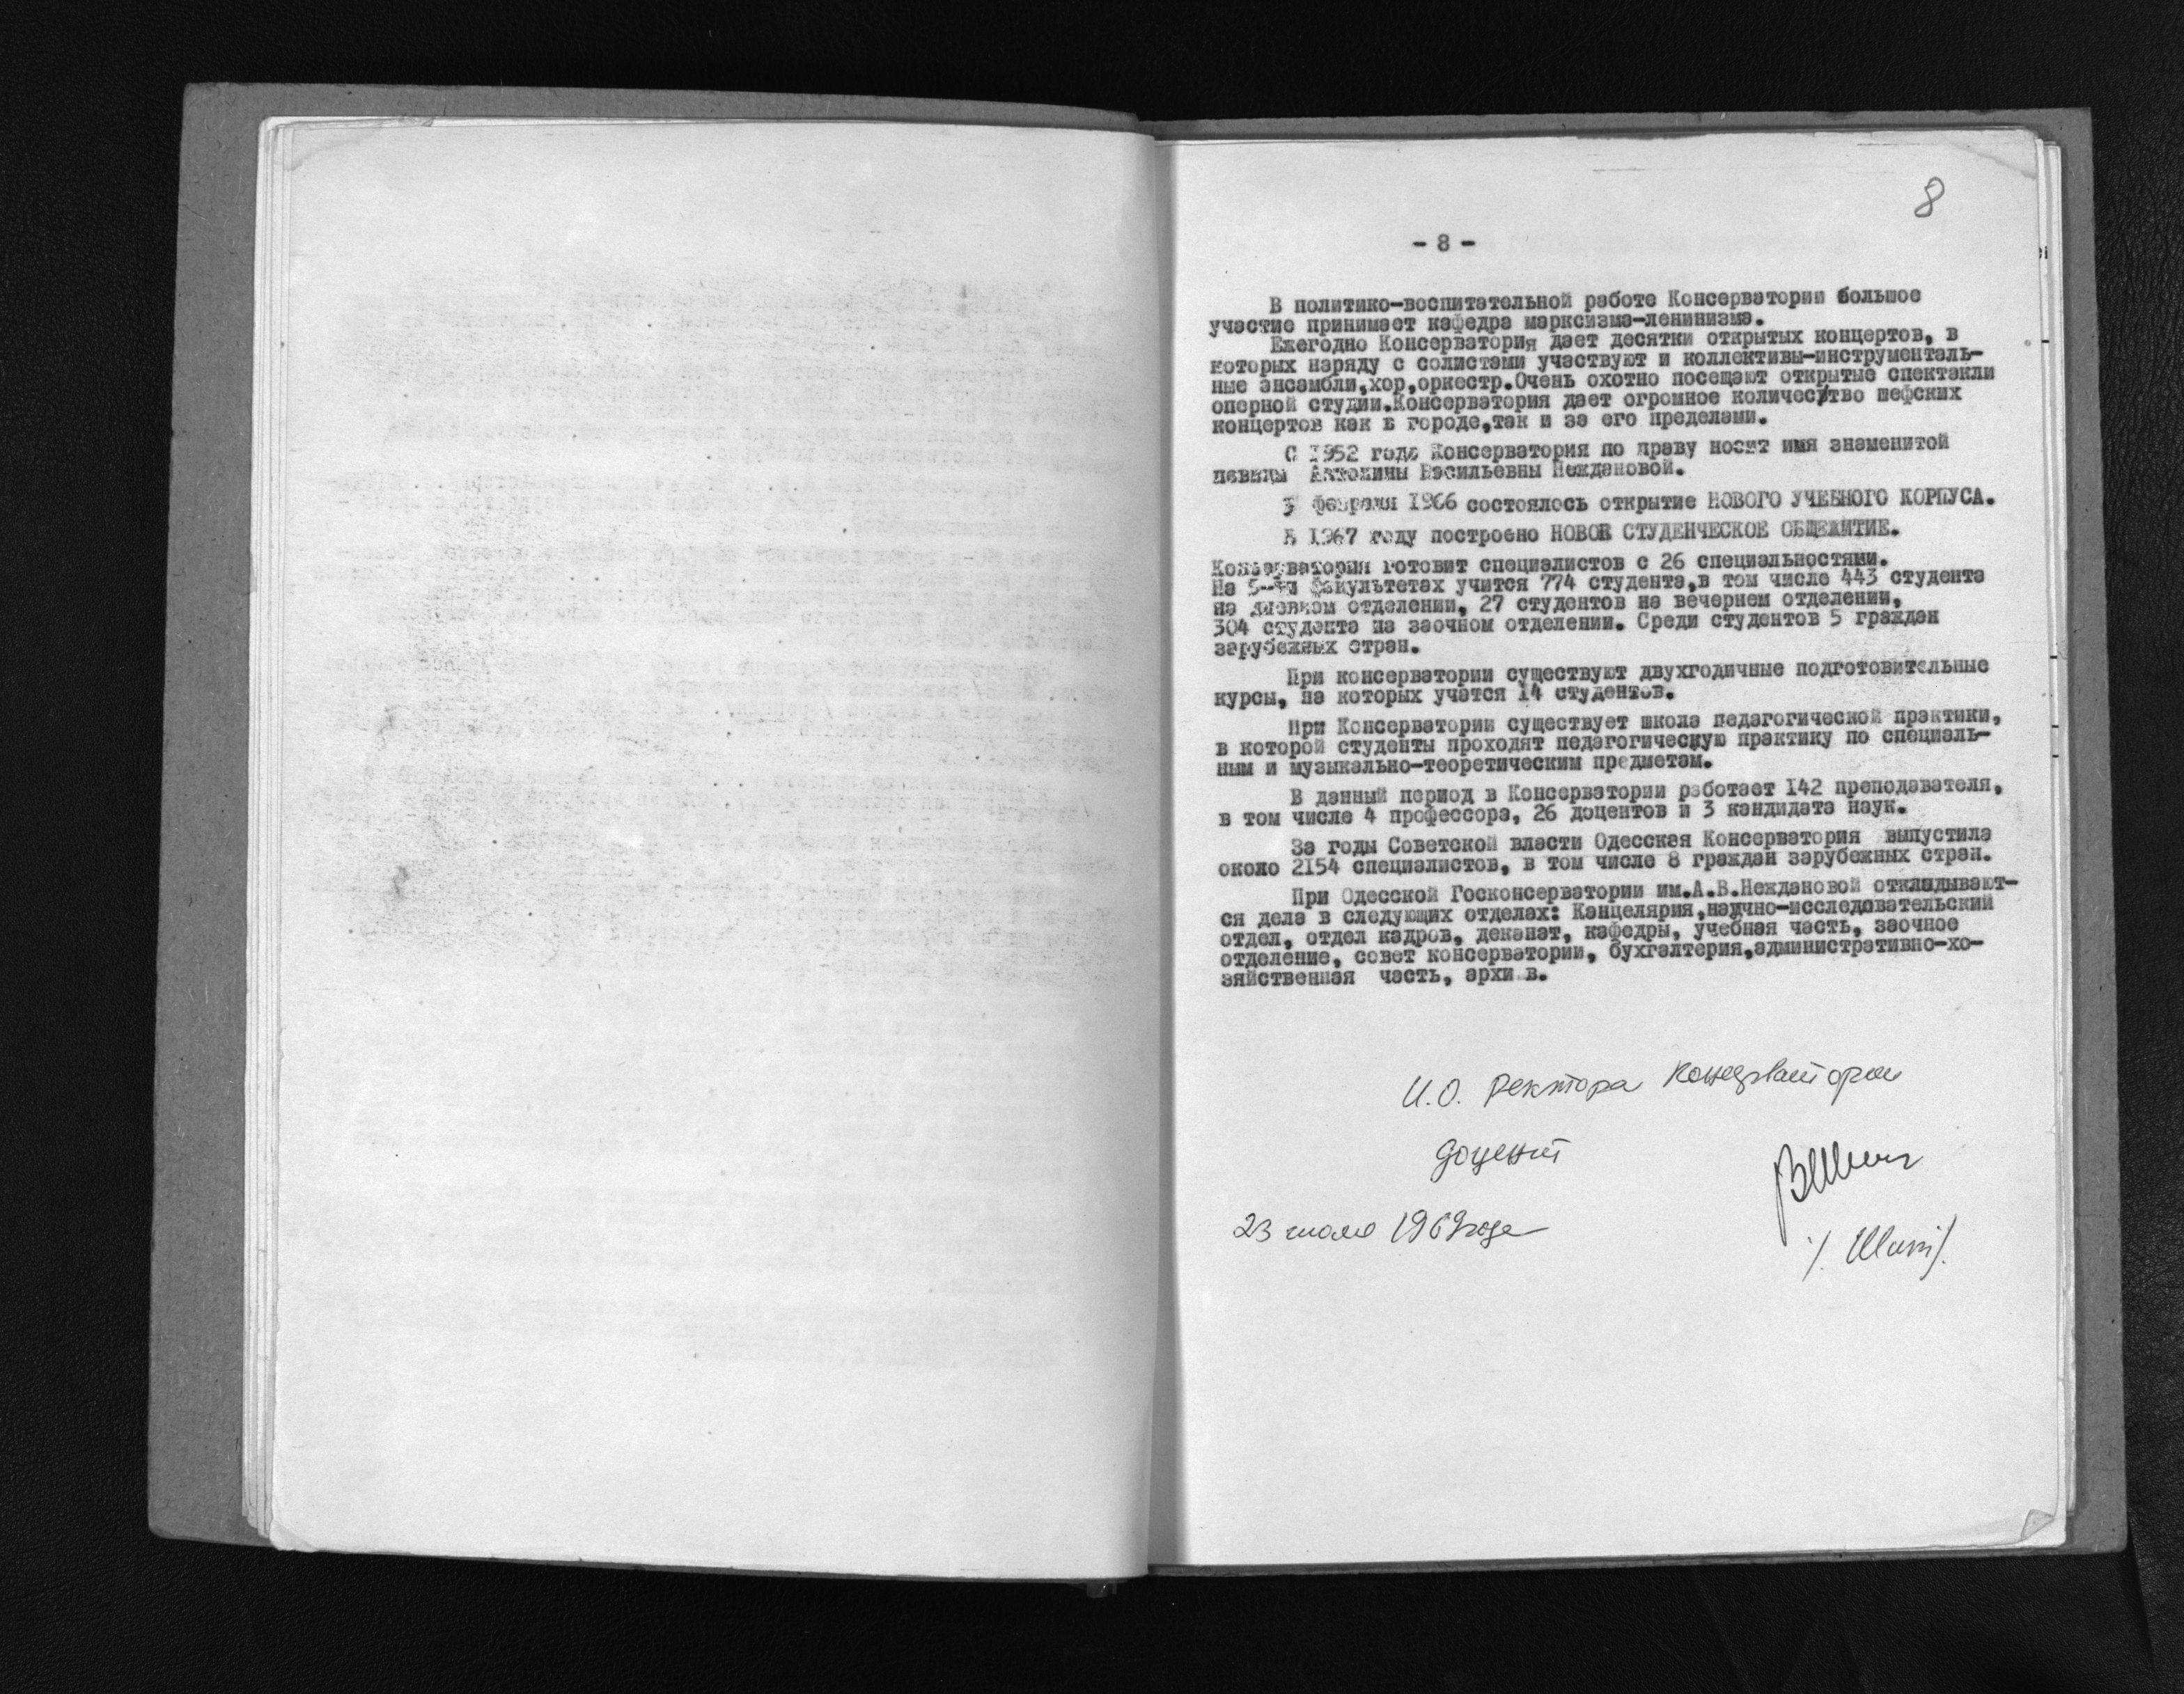 8
- 8 -
В политико-воспитательной работе Консерватории большое
участие принимает кафедра марксизма-ленинизма.
Ежегодно Консерватория дает десятки открытых концертов, в
которых наряду с солистами участвуют и коллективы-инструменталь-
ные ансамбли,хор,оркестр.Очень охотно посещают открытые спектакли
оперной студии.Консерватория дает огромное количество шефских
концертов как в городе,так и за его пределами.
С 1952 года Консерватория по праву носит имя знаменитой
певицы Антонины Васильевны Неждановой.
3 февраля 1966 состоялось открытие НОВОГО УЧЕБНОГО КОРПУСА.
В 1967 году построено НОВОЕ СТУДЕНЧЕСКОЕ ОБЩЕЖИТИЕ.
Консерватория готовит специалистов с 26 специальностями.
На 5-ти факультетах учится 774 студента,в том числе 443 студента
на дневном отделении, 27 студентов на вечернем отделении,
304 студента на заочном отделении. Среди студентов 5 граждан
зарубежных стран.
При консерватории существуют двухгодичные подготовительные
курсы, на которых учатся 14 студентов.
При Консерватории существует школа педагогической практики,
в которой студенты проходят педагогическую практику по специаль-
ным и музыкально-теоретическим предметам.
В данный период в Консерватории работает 142 преподавателя,
в том числе 4 профессора, 26 доцентов и 3 кандидата наук.
За годы Советской власти Одесская Консерватория выпустила
около 2154 специалистов, в том числе 8 граждан зарубежных стран.
При Одесской Госконсерватории им.А.В.Неждановой откладывают-
ся дела в следующих отделах: Канцелярия,научно-исследовательский
отдел, отдел кадров, деканат, кафедры, учебная часть, заочное
отделение, совет консерватории, бухгалтерия,административно-хо-
зяйственная часть, архи в.
И.О. ректора консерватории
доцент
23 июля 1969 года
/. Шип/.